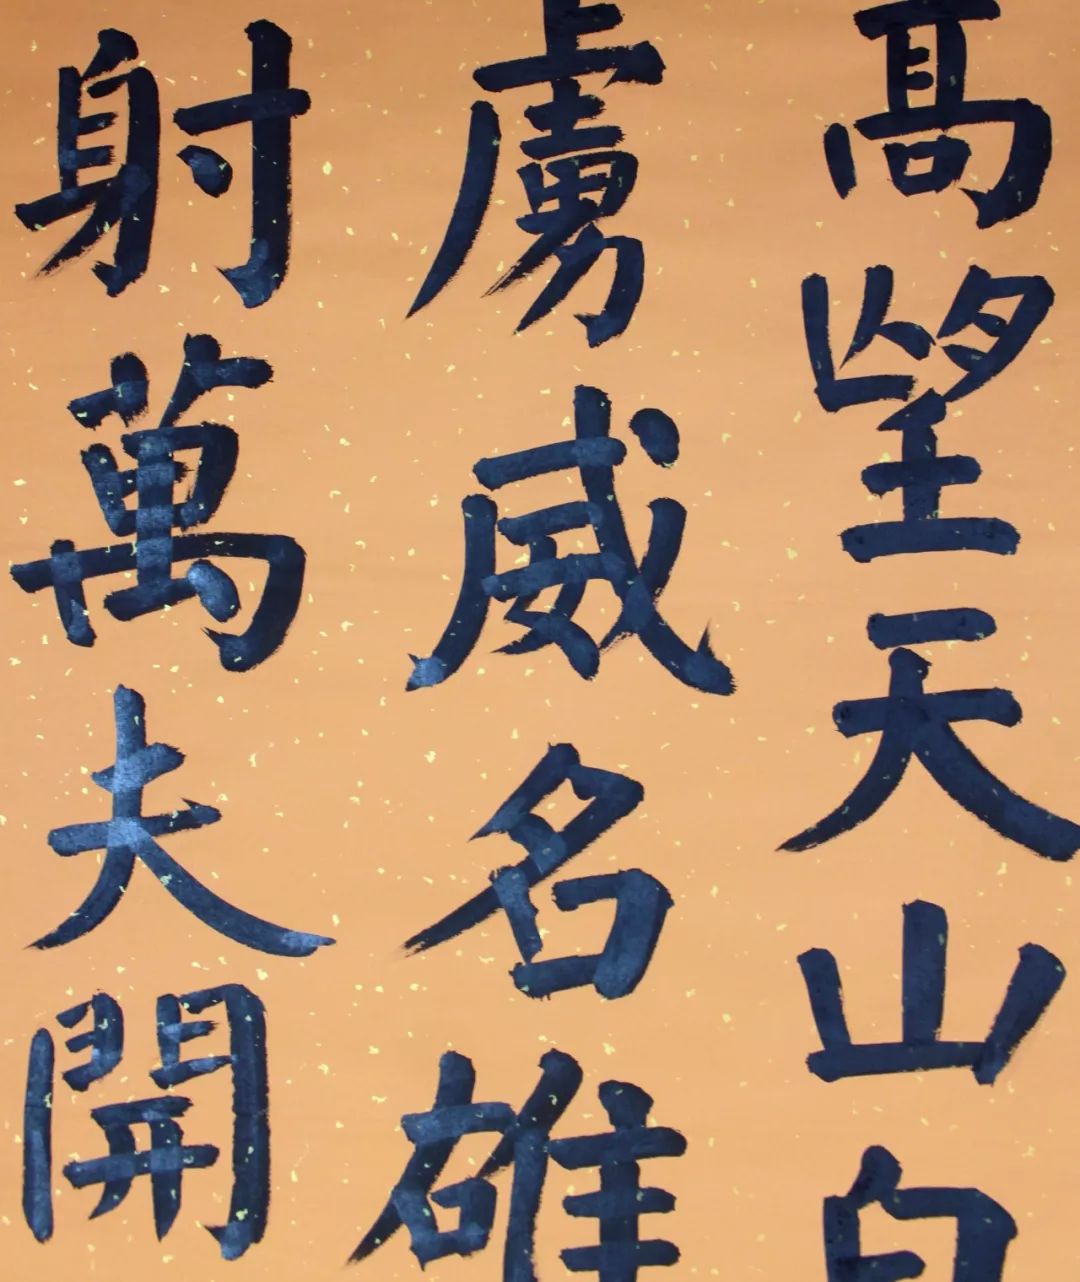 高望天山白
虜威名雄
射萬夫開